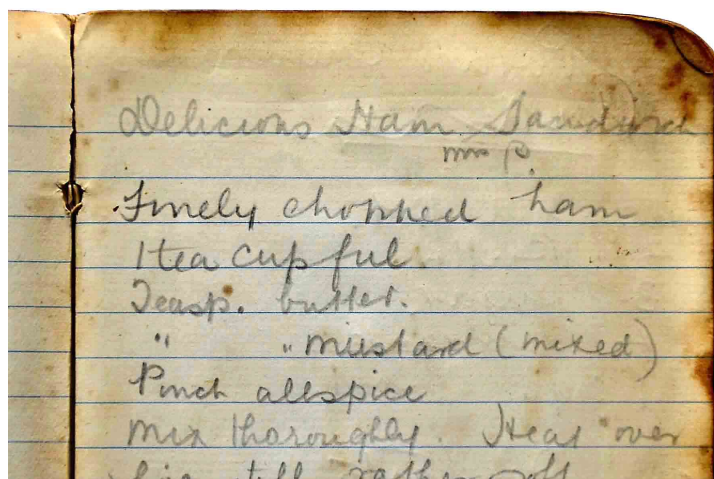 Delicious Ham Sandwich
Mrs P
Finely chopped ham
1 tea cup ful
Teasp. butter.
" " mustard (mixed)
Pinch allspice
Mix thoroughly. Heat over
fire till rather soft